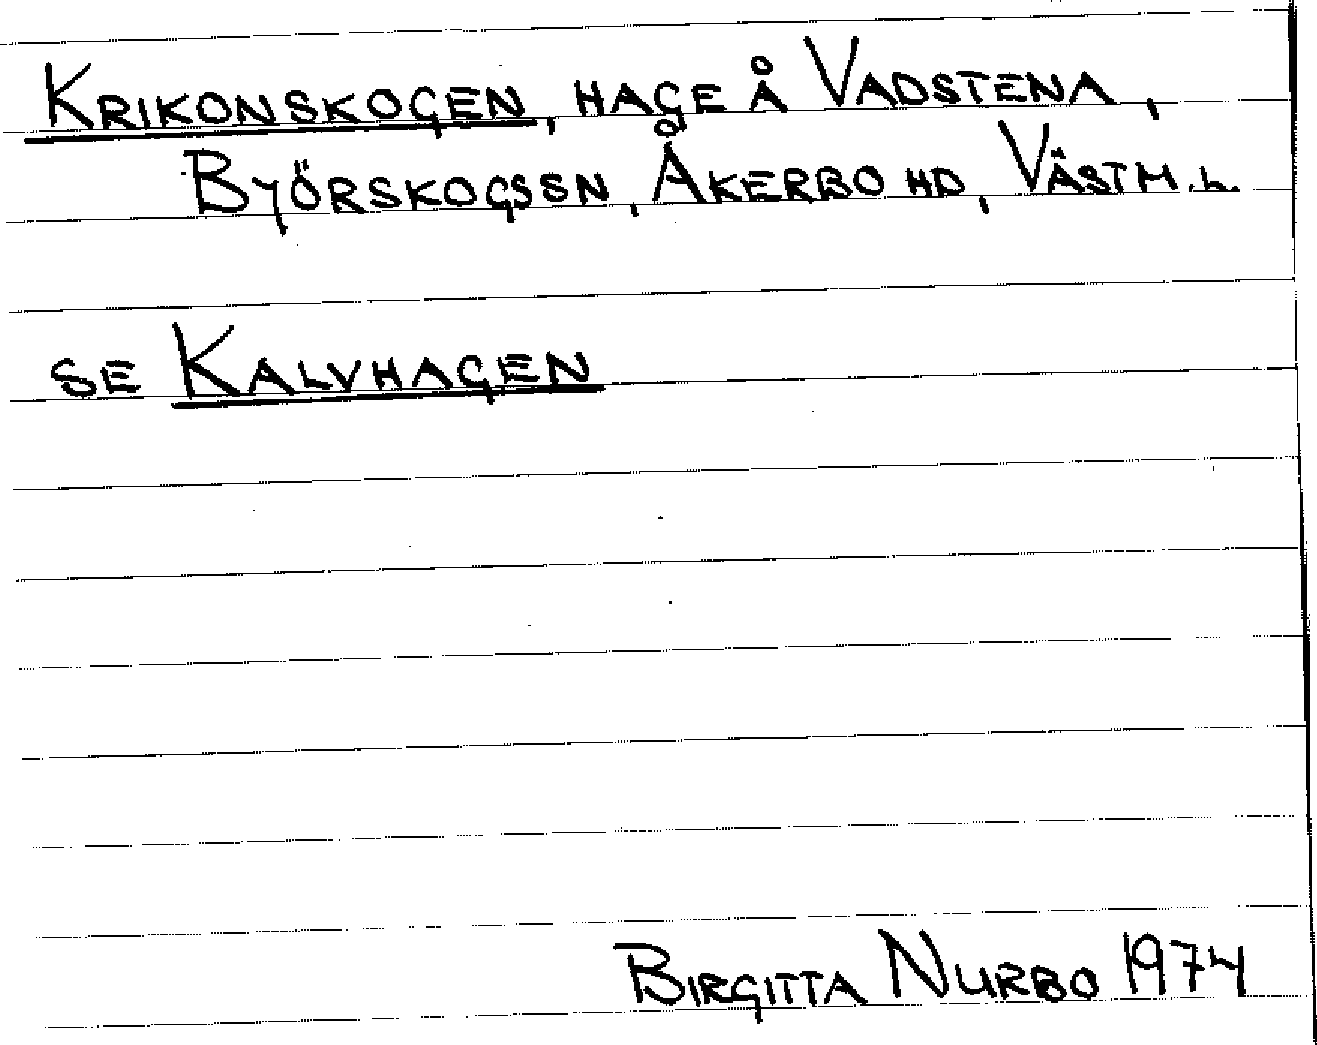 KRIKONSKOGEN, HAGE Å VADSTENA,
BYÖRSKOGSSN, ÅKERBO HD, VÄSTM.L.
SE KALVHAGEN
BIRGITTA NURBO 1974